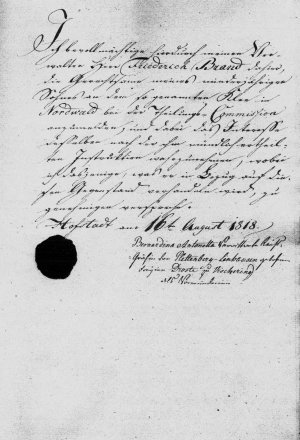 Ich bevollmächtige hierdurch meinen Ver-
walter Herr Friedrich Brand dahin,
die Gerechtsame meines minderjährigen
Sohnes an dem so genannten Klei in
Nordwald bei der Theilungs-Commission
anzumelden, und dabei das Interesse
desselben nach der ihm mündlich ertheil-
ten Instruktion wahrzunehmen, wobei
ich dasjenige, was er in Bezug auf die-
sen Gegenstand verhandeln wird, zu
genehmigen verspreche.
Hofstadt am 16t August 1818.
Bernardina Antonetta
Gräfin von Plettenberg-Lenhausen geborne
Droste zu Vischering
als Vormünderin